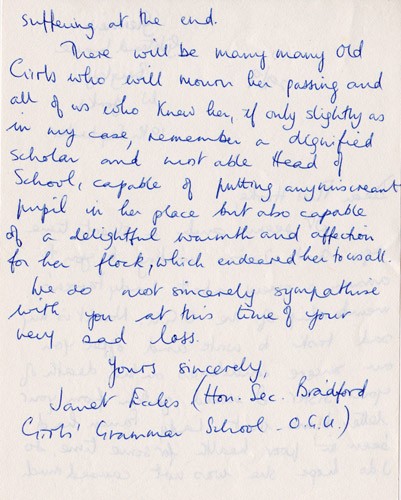 suffering at the end.
There will be many many Old
Girls who will mourn her passing and
all of us who knew her, if only slightly as
in my case, remember a dignified
scholar and most able Head of
School, capable of putting any miscreant
pupil in her place but also capable
of a delightful warmth and affection
for her flock, which endeared her to us all.
We do most sincerely sympathise
with you at this time of your
very sad loss.
Yours sincerely,
Janet Eccles (Hon. Sec. Bradford
Girls' Grammar School - O.G.U.)